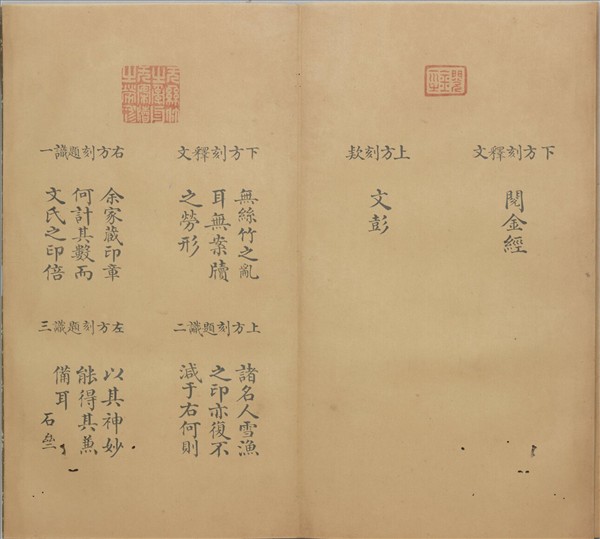 下方刻釋文
閱金經
上方刻欵
文彭
下方刻釋文
無絲竹之亂
耳無案牘
之勞形
右方刻題識一
余家藏印章
何計其數而
文氏之印倍
上方刻題識二
諸名人雪漁
之印亦復不
減于右何則
左方刻題識三
以其神妙
能得其兼
備耳 石壘